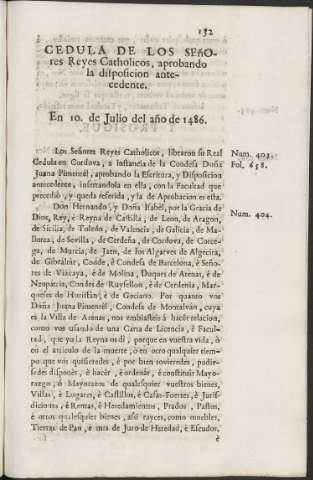 152
CEDULA DE LOS SEÑO-
res Reyes Catholicos, aprobando
la disposicion ante-
cedente.
En 10. de Julio del año de 1486.
Los Señores Reyes Catholicos, libraron su Real
Cedula en Cordova, a instancia de la Condesa Doña
Juana Pimentel, aprobando la Escritura, y Disposicion
antecedente, insertandola en ella, con la Facultad que
precedió, y queda referida, y la de Aprobacion es esta.
Don Hernando, y Doña Isabèl, por la Gracia de
Dios, Rey, è Reyna de Castilla, de Leon, de Aragon,
de Sicilia, de Toledo, de Valencia, de Galicia, de Ma-
llorca, de Sevilla, de Cerdeña, de Cordova, de Corce-
ga, de Murcia, de Jaen, de los Algarves de Algecira,
de Gibraltàr, Conde, è Condesa de Barcelona, è Seño-
res de Vizcaya, è de Molina, Duques de Atenas, è de
Neopatria, Condes de Ruysellon, è de Cerdenia, Mar-
queses de Oristàn, è de Gociano. Por quanto vos
Doña Juana Pimentèl, Condesa de Montalvàn, cuya
es la Villa de Arenas, nos embiasteis à hacer relacion,
como vos usando de una Carta de Licencia, è Facul-
tad, que yo la Reyna os dì, porque en vuestra vida, ò
en el articulo de la muerte, ò en otro qualquier tiem-
po que vos quisieredes, è por bien tovieredes, pudie-
sedes disponèr, è hacèr, è ordenàr, è constituìr Mayo-
razgo, ò Mayorazos de qualesquier vuestros bienes,
Villas, è Lugares, è Castillos, è Casas-Fuertes, è Juris-
diciones, è Rentas, è Heredamientos, Prados, Pastos,
è otros qualesquier bienes, asi rayces, como muebles,
Tierras de Pan, è mrs de Juro de Heredad, è Escudos,
è
Num. 403.
Fol. 658.
Num. 404.